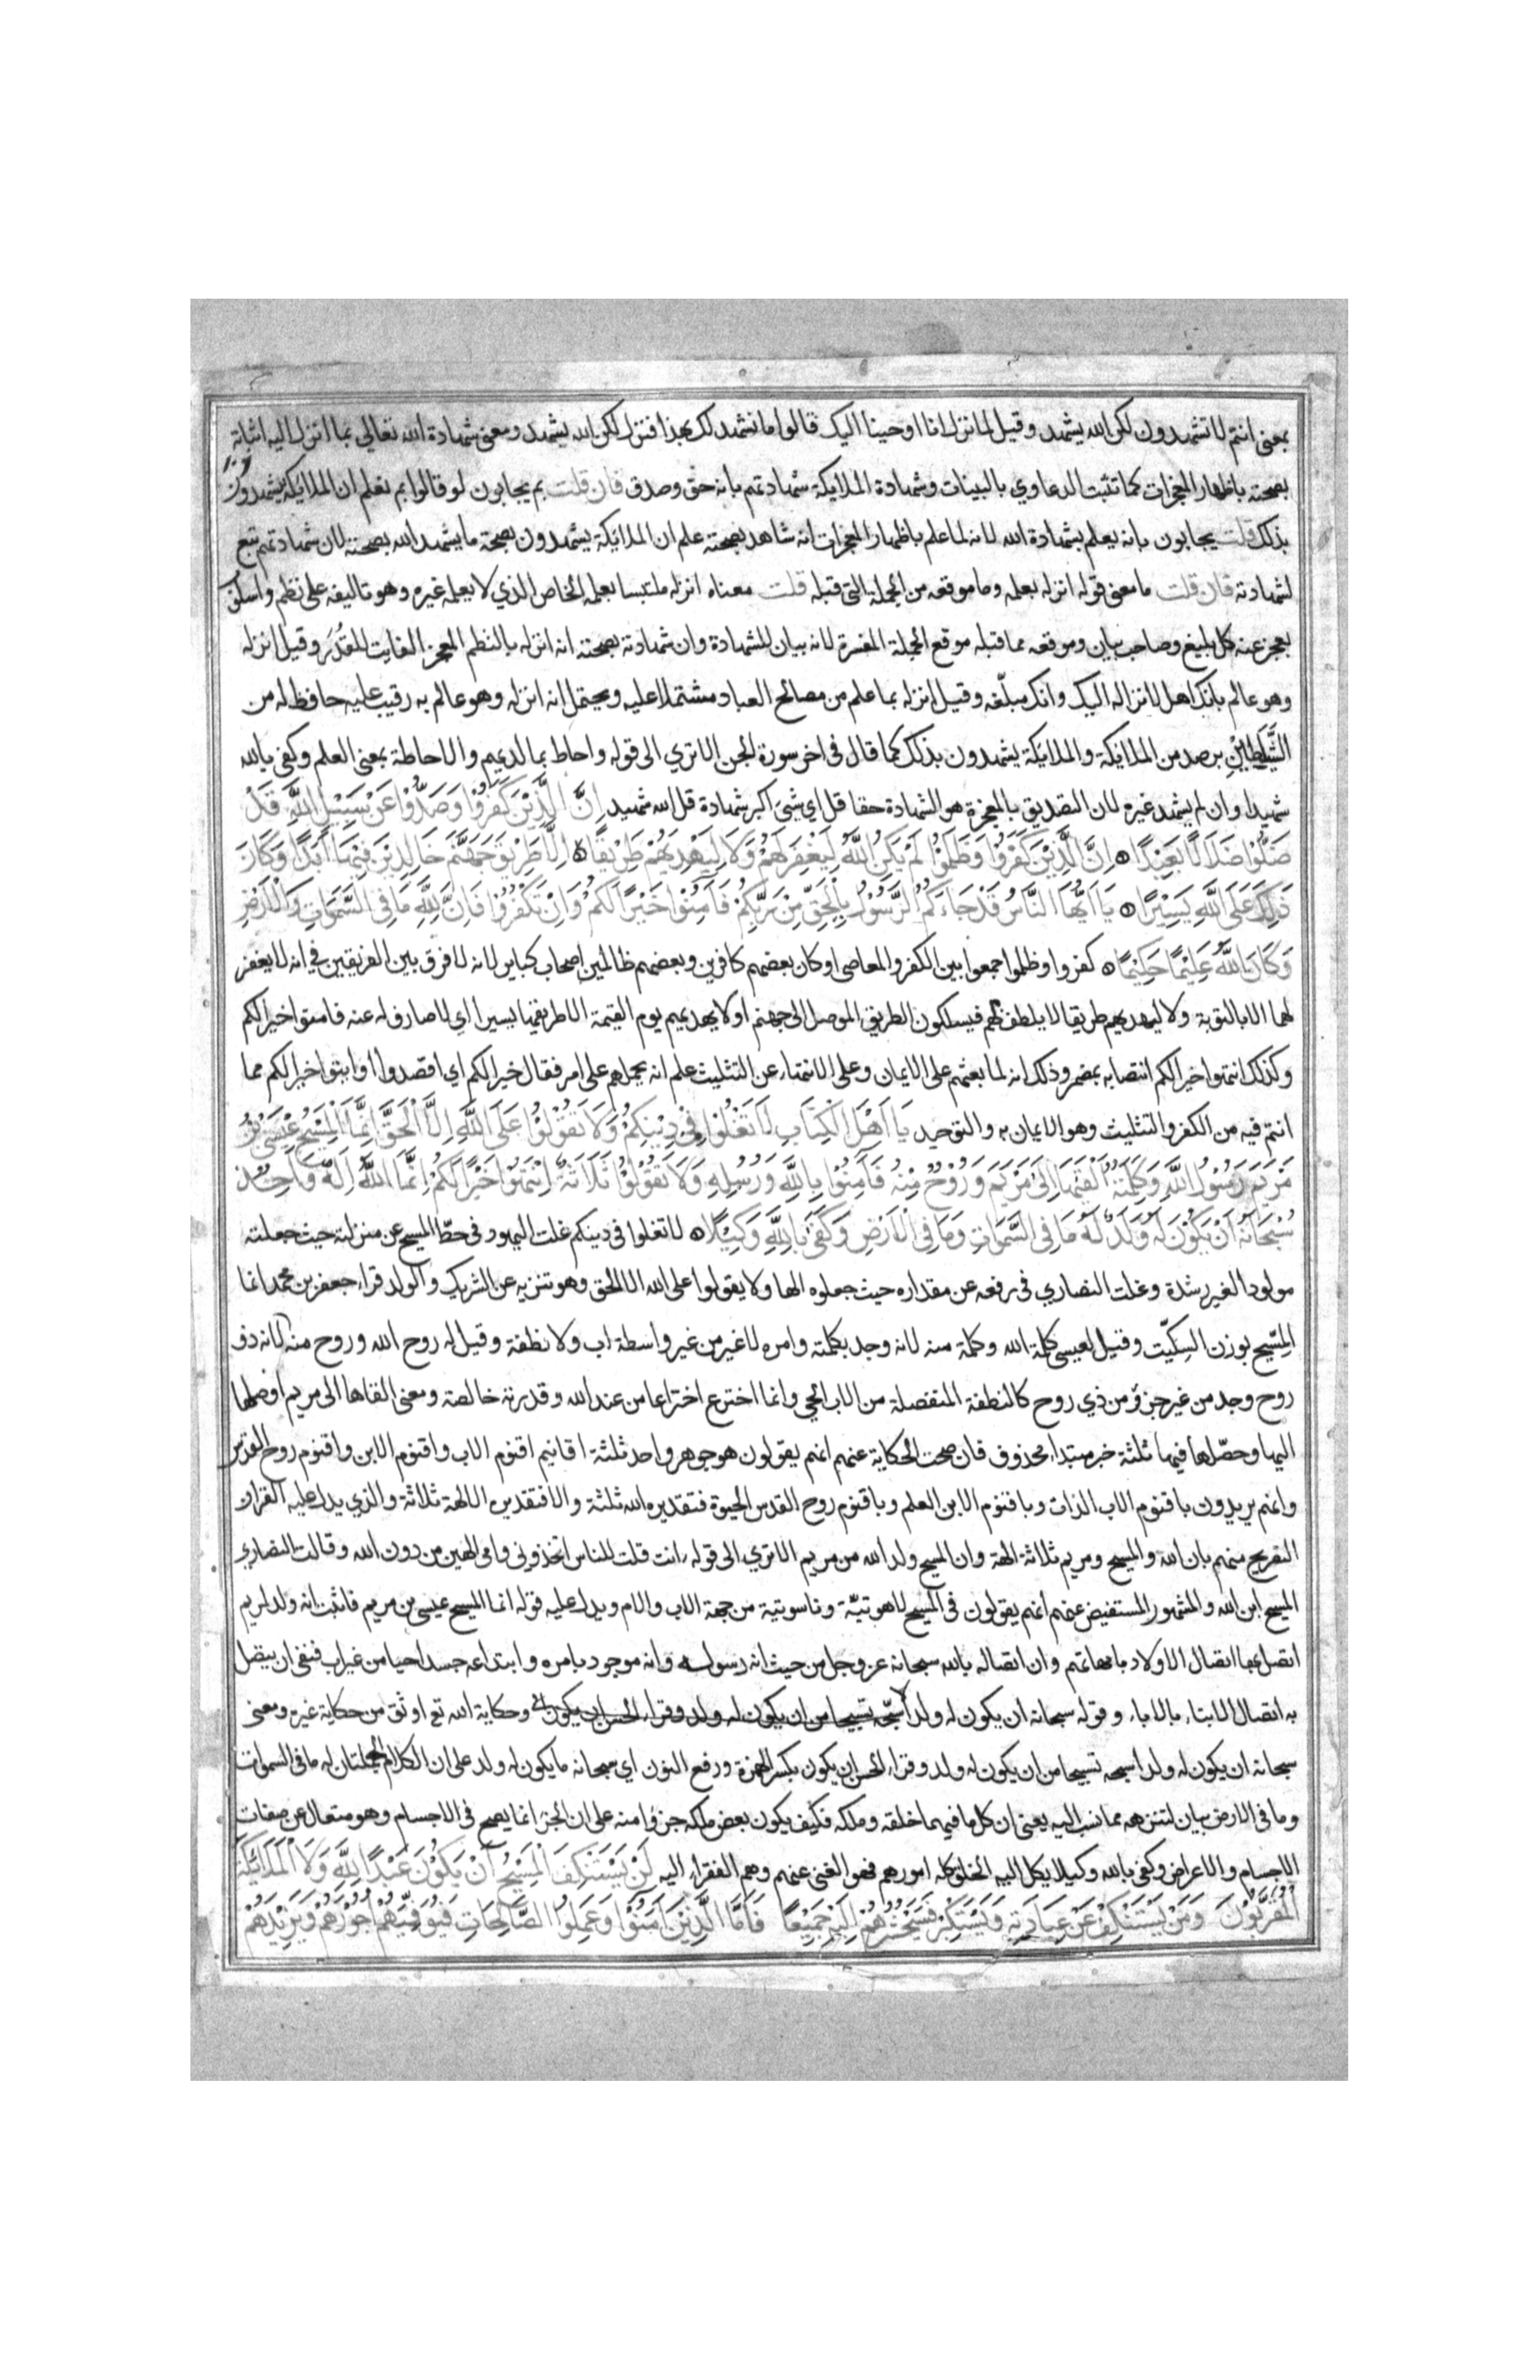 بمعنى انتم لا تشهدون لكن الله يشهد وقيل لما نزل انا اوحينا اليك قالوا ما نشهد لك بهذا فنزل لكن الله يشهد ومعنى شهادة الله تعالي بما انزل اليه اثباته
بصحته باظهار المعجزات كما تثبت الدعاوي بالبينات وشهادة الملايكة شهادتهم بانه حق وصدق فان قلت بم يجابون لو قالوا بم نعلم ان الملايكة يشهدون
بذلك قلت يجابون بانه يعلم بشهادة الله لانه لما علم باظهار المعجزات انه شاهد بصحته علم ان الملائكة يشهدون بصحة ما يشهد الله بصحته لان شهادتهم تبع
لشهادته فان قلت ما معنى قوله انزله بعلمه وما موقعه من الجملة التى قبله قلت معناه انزله ملتبسا بعلمه الخاص الذي لا يعلمه غيره وهو تاليفه على نظم واسلوب
يعجز عنه كل بليغ وصاحب بيان وموقعه مما قبله موقع الجملة المفسرة لانه بيان للشهادة وان شهادته بصحته انه انزله بالنظم المعجز الفايت للقدر وقيل انزله
وهو عالم بانك اهل لانزاله اليك وانك مبلغه وقيل انزله بما علم من مصالح العباد مشتملا عليه ويحتمل انه انزله وهو عالم به رقيب عليه حافظ له من
الشياطين برصد من الملائكة والملايكة يشهدون بذلك كما قال في اخر سورة الجن الا تري الى قوله واحاط بما لديهم والاحاطة بمعنى العلم وكفى بالله
شهيدا وان لم يشهد غيره لان التصديق بالمعجزة هو الشهادة حقا قل اي شئ اكبر شهادة قل الله شهيد اِنَّ الَّذِيْنَ كَفَرُوْا وَصَدُّوْا عَنْ سَبِيْلِ اللّٰهِ قَدْ
ضَلُّوْا ضَلَالًا بَعِيْدًا اِنَّ الَّذِيْنَ كَفَرُوا وَظَلَمُوْا لَمْ يَكُنِ اللّٰهُ لِيَغْفِرَ لَهُمْ وَلَا لِيَهْدِيَهُمْ طَرِيْقًا اِلَّا طَرِيْقَ جَهَنَّمَ خَالِدِيْنَ فِيْهَا اَبَدًا وَكَانَ
ذٰلِكَ عَلَى اللّٰهِ يَسِيْرًا يَا اَيُّهَا النَّاسُ قَدْ جَاءَكُمُ الرَّسُوْلُ بِالْحَقِّ مِنْ رَبِّكُمْ فَآمِنُوْا خَيْرًا لَكُمْ وَاِنْ تَكْفُرُوْا فَاِنَّ لِلّٰهِ مَا فِى السَّمٰوَاتِ وَالْاَرْضِ
وَكَانَ اللّٰهُ عَلِيْمًا حَكِيْمًا كفروا وظلموا جمعوا بين الكفر والمعاصى او كان بعضهم كافرين وبعضهم ظالمين اصحاب كباير لانه لا فرق بين الفريقين في انه لا يغفر
لهما الا بالتوبة ولا ليهديهم طريقا لا يلطف بهم فيسلكون الطريق الموصل الى جهنم او لا يهديهم يوم القيمة الا طريقها يسيرا اي لا صارف له عنه فامنوا خيرا لكم
وكذلك انتهوا خيرا لكم انتصابه بمضمر وذلك انه لما بعثهم على الايمان وعلى الانتهاء عن التثليث علم انه يحملهم على امر فقال خيرا لكم اي اقصدوا او ايتوا خيرا لكم مما
انتم فيه من الكفر والتثليث وهو الايمان به والتوحيد يَا اَهْلَ الْكِتَابِ لَا تَغْلُوْا فِيْ دِيْنِكُمْ وَلَا تَقُوْلُوْا عَلَى اللّٰهِ اِلَّا الْحَقَّ اِنَّمَا الْمَسِيْحُ عِيْسَى بْنُ
مَرْيَمَ رَسُوْلُ اللّٰهِ وَكَلِمَتُهُ اَلْقٰهَا اِلَى مَرْيَمَ وَرُوْحٌ مِنْهُ فَآمِنُوْا بِاللّٰهِ وَرُسُلِهِ وَلَا تَقُوْلُوْا ثَلَاثَةٌ اِنْتَهُوْا خَيْرًا لَكُمْ اِنَّمَا اللّٰهُ اِلٰهٌ وَاحِدٌ
سُبْحَانَهُ اَنْ يَكُوْنَ لَهُ وَلَدٌ لَهُ مَا فِى السَّمٰوَاتِ وَمَا فِى الْاَرْضِ وَكَفَى بِاللّٰهِ وَكِيْلًا لا تغلوا فى دينكم غلت اليهود فى حطّ المسيح عن منزلته حيث جعلته
مولودا لغير رشدة وغلت النصاري فى رفعه عن مقداره حيث جعلوه الها ولا يقولوا على الله الا الحق وهو تنزيه عن الشريك والولد قراء جعفر بن محمد انما
المِسِّيح بوزن السِكيّت وقيل لعيسى كلمة الله وكلمة منه لانه وجد بكلمته وامره لا غير من غير واسطة اب ولا نطفة وقيل له روح الله وروح منه لانه ذو
روح وجد من غير جزؤ من ذي روح كالنطفة المنفصلة من الاب الحي وانما اخترع اختراعا من عند الله وقدرته خالصة ومعنى القاها الى مريم اوصلها
اليها وحصّلها فيها ثلثة خبر مبتداء محذوف فان صحت الحكاية عنهم انهم يقولون هو جوهر واحد ثلثة اقانيم اقنوم الاب واقنوم الابن واقنوم روح القدس
وانهم يريدون باقنوم الاب الذات وباقنوم الابن العلم وباقنوم روح القدس الحيوة فتقديره الله ثلثة والا فتقديره الالهة ثلاثة والذي يدل عليه القران
التصريح منهم بان الله والمسيح ومريم ثلاثة الهة وان المسيح ولد الله من مريم الا تري الى قوله انت قلت للناس اتخذوني وامى الهين من دون الله وقالت النصاري
المسيح ابن الله والمشهور المستفيض عنهم انهم يقولون فى المسيح لاهوتيّة وناسوتية من جهة الاب والام ويدل عليه قوله انما المسيح عيسى بن مريم فاثبت انه ولد لمريم
اتصل بها اتصال الاولاد بامهاتهم وان اتصاله بالله سبحانه عز وجل من حيث انه رسوله وانه موجود بامره وابتداعه جسدا حيا من غير اب فنفى ان يتصل
به اتصال الابناء بالاباء وقوله سبحانه ان يكون له ولد اسبّحه تسبيحا من ان يكون له ولد وقراء الحسن ان يكون وحكاية الله تع اوثق من حكاية غيره ومعنى
سبحانه ان يكون له ولد اسبحه تسبيحا من ان يكون له ولد وقراء الحسن ان يكون بكسر الهمزة ورفع النون اي سبحانه ما يكون له ولد على ان الكلام جملتان له ما فى السموات
وما فى الارض بيان لتنزهه مما نسب اليه يعنى ان كل ما فيهما خلقه وملكه فكيف يكون بعض ملكه جزؤا منه على ان الجزء انما يصح فى الاجسام وهو متعال عن صفات
الاجسام والاعراض وكفى بالله وكيلا يكل اليه الخلق كله امورهم فهو الغنى عنهم وهم الفقراء اليه لَنْ يَسْتَنْكِفَ الْمَسِيْحُ اَنْ يَكُوْنَ عَبْدًا لِلّٰهِ وَلَا الْمَلَائِكَةُ
الْمُقَرَّبُوْنَ وَمَنْ يَسْتَنْكِفْ عَنْ عِبَادَتِهِ وَيَسْتَكْبِرْ فَسَيَحْشُرُهُمْ اِلَيْهِ جَمِيْعًا فَاَمَّا الَّذِيْنَ آمَنُوْا وَعَمِلُوا الصَّالِحَاتِ فَيُوَفِّيْهِمْ اُجُوْرَهُمْ وَيَزِيْدُهُمْ